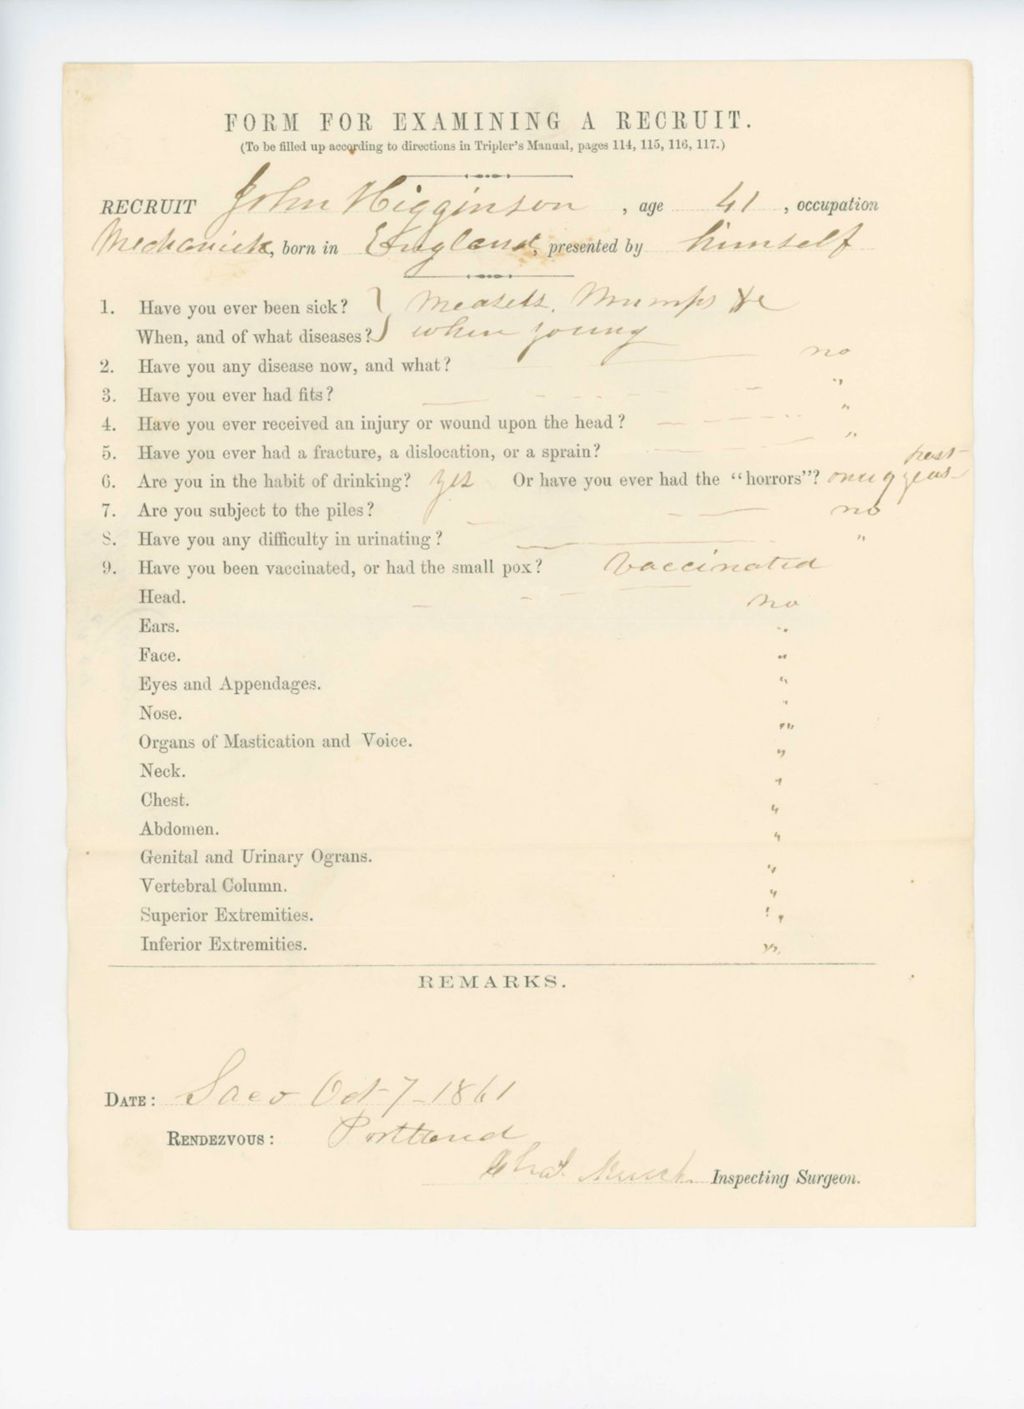 FORM FOR EXAMINING A RECRUIT.
(To be filled up according to directions in Tripler's Manual, pages 114, 115, 116, 117.)
RECRUIT John Higginson , age 41 , occupation
Mechanick, born in England, presented by himself
1. Have you ever been sick? } Measels, Mumps &c
When, and of what diseases? } when young
2. Have you any disease now, and what? no
3. Have you ever had fits? "
4. Have you ever received an injury or wound upon the head? "
5. Have you ever had a fracture, a dislocation, or a sprain? "
6. Are you in the habit of drinking? yes Or have you ever had the "horrors"?
7. Are you subject to the piles? no
8. Have you any difficulty in urinating? "
9. Have you been vaccinated, or had the small pox? Vaccinated
Head. no
Ears. "
Face. "
Eyes and Appendages. "
Nose. "
Organs of Mastication and Voice. "
Neck. "
Chest. "
Abdomen. "
Genital and Urinary Ograns. "
Vertebral Column. "
Superior Extremities. "
Inferior Extremities. "
REMARKS.
DATE: Saco Oct 7 - 1861
RENDEZVOUS: Portland
Inspecting Surgeon.